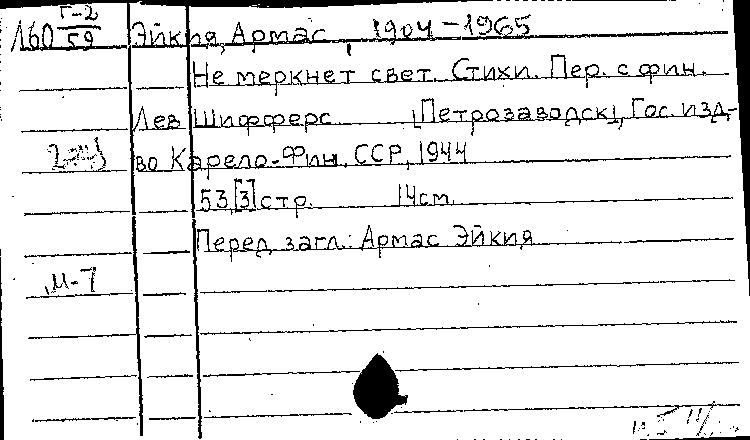 Г-2
160 59 Эйкия, Армас, 1904-1965
Не меркнет свет. Стихи. Пер. с фин.
Лев Шифферс [Петрозаводск], Гос. изд-
во Карело-Фин. ССР, 1944
53,[3] стр. 14см.
Перед загл.: Армас Эйкия
М-7